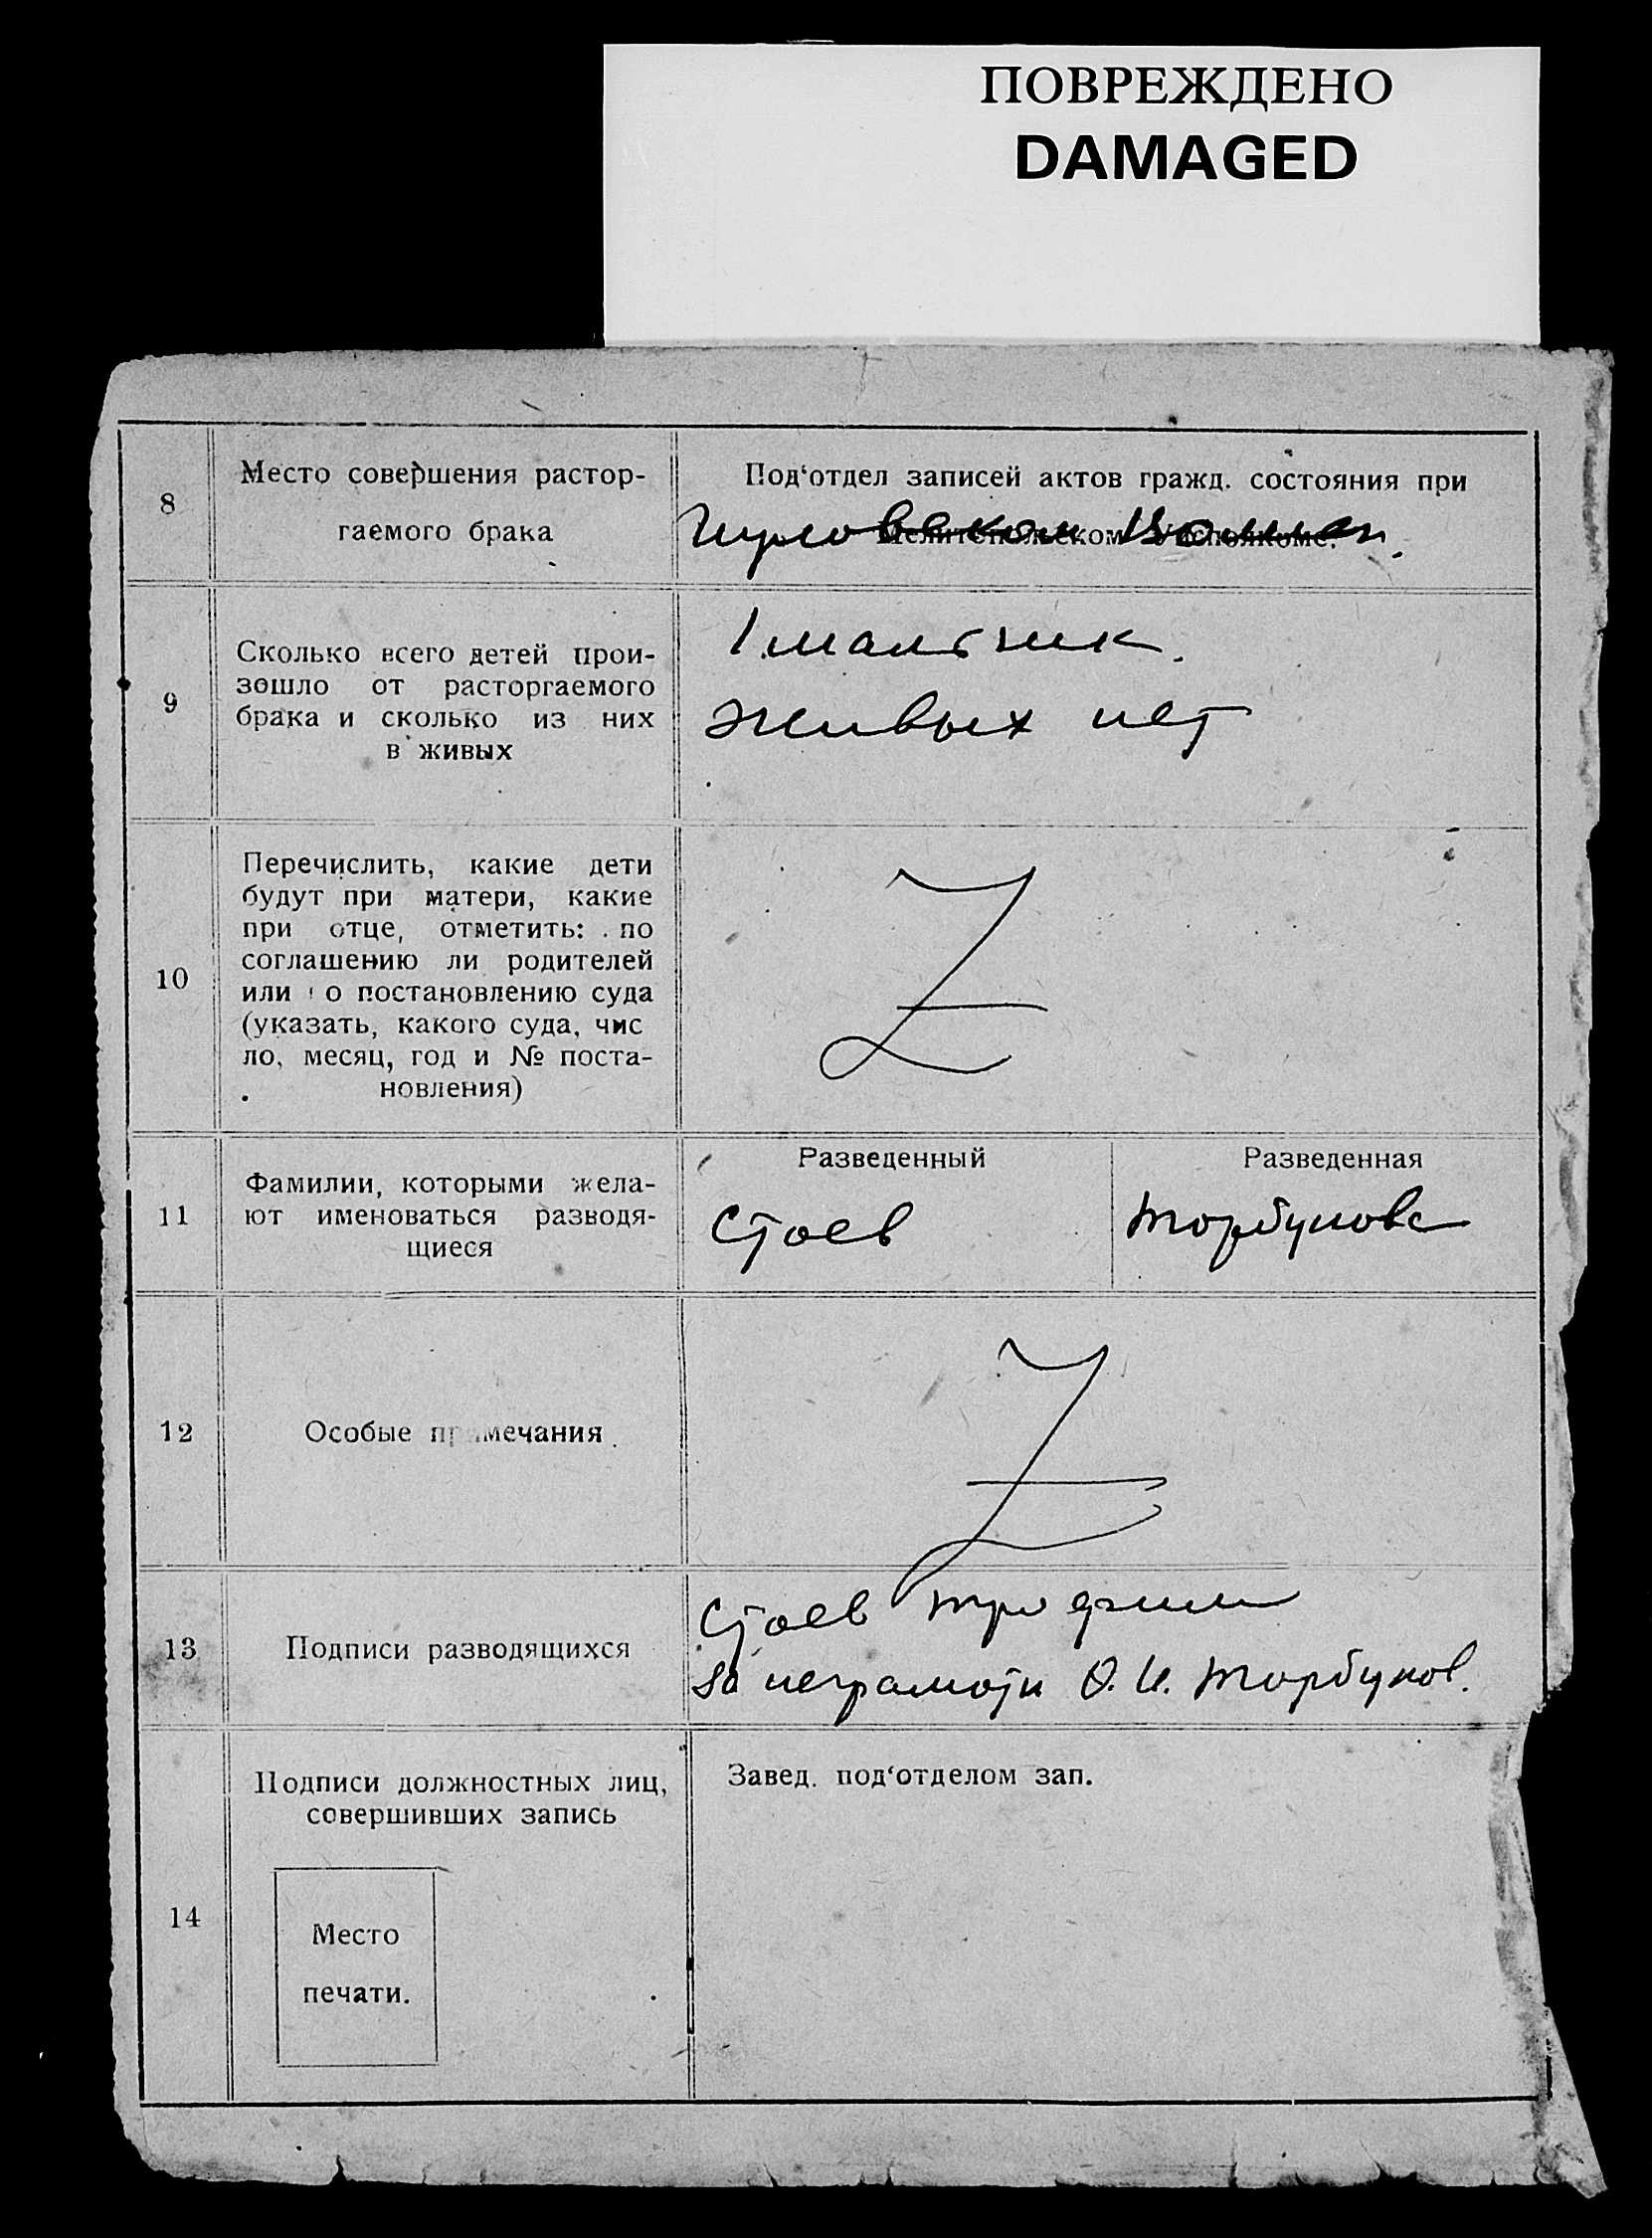 ПОВРЕЖДЕНО
DAMAGED
8
Место совершения растор-
гаемого брака
Под‘отдел записей актов гражд. состояния при
Мелитопольском Уисполкоме.
9
Сколько всего детей прои-
зошло от расторгаемого
брака и сколько из них
в живых
1 мальчик.
живых нет
10
Перечислить, какие дети
будут при матери, какие
при отце, отметить: по
соглашению ли родителей
или о постановлению суда
(указать, какого суда, чис
ло, месяц, год и № поста-
новления)
11
Фамилии, которыми жела-
ют именоваться разводя-
щиеся
Разведенный
Стоев
Разведенная
Торбунова
12
Особые примечания
13
Подписи разводящихся
Стоев Трофим
за неграмотн О. И. Торбунов.
14
Подписи должностных лиц,
совершивших запись
Место
печати.
Завед. под‘отделом зап.